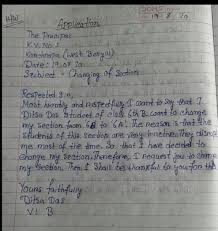 H/W
Application
The Principal
K.V. No. 1
(West Bengal)
Date: 19.08.20
Subject - Changing of Section
Respected sir,
Most humbly and respectfully I want to say that I
Ditsa Das student of class 6th B. want to change
my section from 6B to 6A. The reason is that the
students of this section are very They
me most of the time. So that I have decided to
change my section. Therefore, I request you to change
my section. Then I shall be thankful to you for this
Yours faithfully
Ditsa Das
VI B